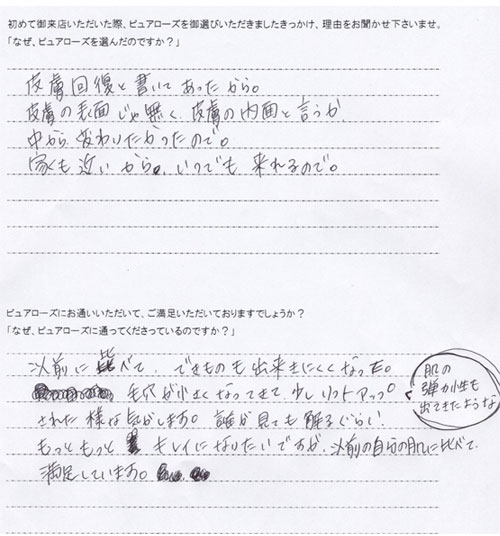 初めて御来店いただいた際、ピュアローズを御選びいただきましたきっかけ、理由をお聞かせ下さいませ。
「なぜ、ピュアローズを選んだのですか？」
皮膚回復と書いてあったから。
皮膚の表面じゃ無く、皮膚の内面と言うか
中から変わりたかったので。
家も近いから。いつでも来れるので。
ピュアローズにお通いいただいて、ご満足いただいておりますでしょうか？
「なぜ、ピュアローズに通ってくださっているのですか？」
以前に比べて、できものも出来きにくくなった。
毛穴が小さくなってきて、少しリフトアップ。
肌の
弾力性も
出てきたような
された様な気がします。誰が見ても解るぐらい
もっともっとキレイになりたいですが、以前の自分の肌に比べて
満足しています。